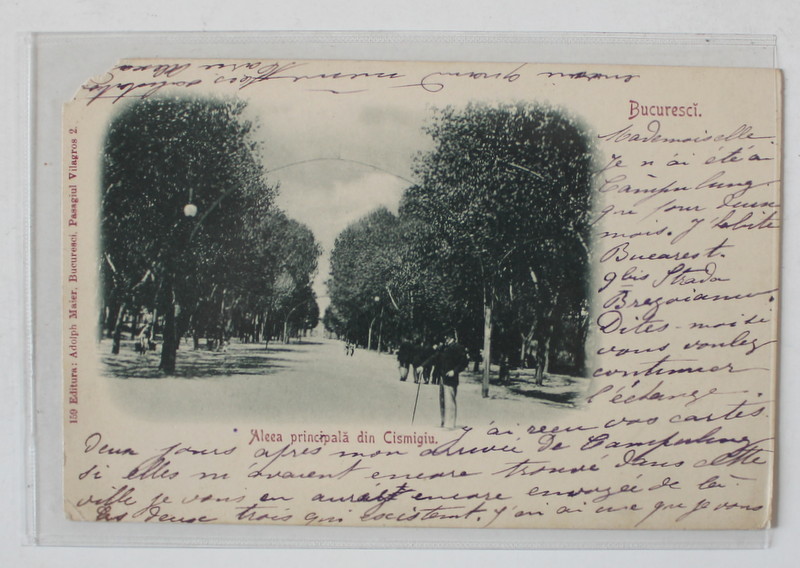 Bucurescĭ.
Mademoiselle.
Je n'ai été à
Câmpulung
que pour deux
mois. J'habite
Bucarest.
9 bis Strada
Brezoianu.
Dites-moi si
vous voulez
continuer
l'échange.
J'ai reçu vos cartes
deux jours après mon arrivée de Campulung
si elles m'avaient encore trouvé dans cette
ville je vous en aurait encore envoyée de là
les deux trois qui excistent. J'en ai vue que je vous
Aleea principală din Cismigiu.
159 Editura: Adolph Maier, Bucuresci, Pasagiul Vilagros 2.